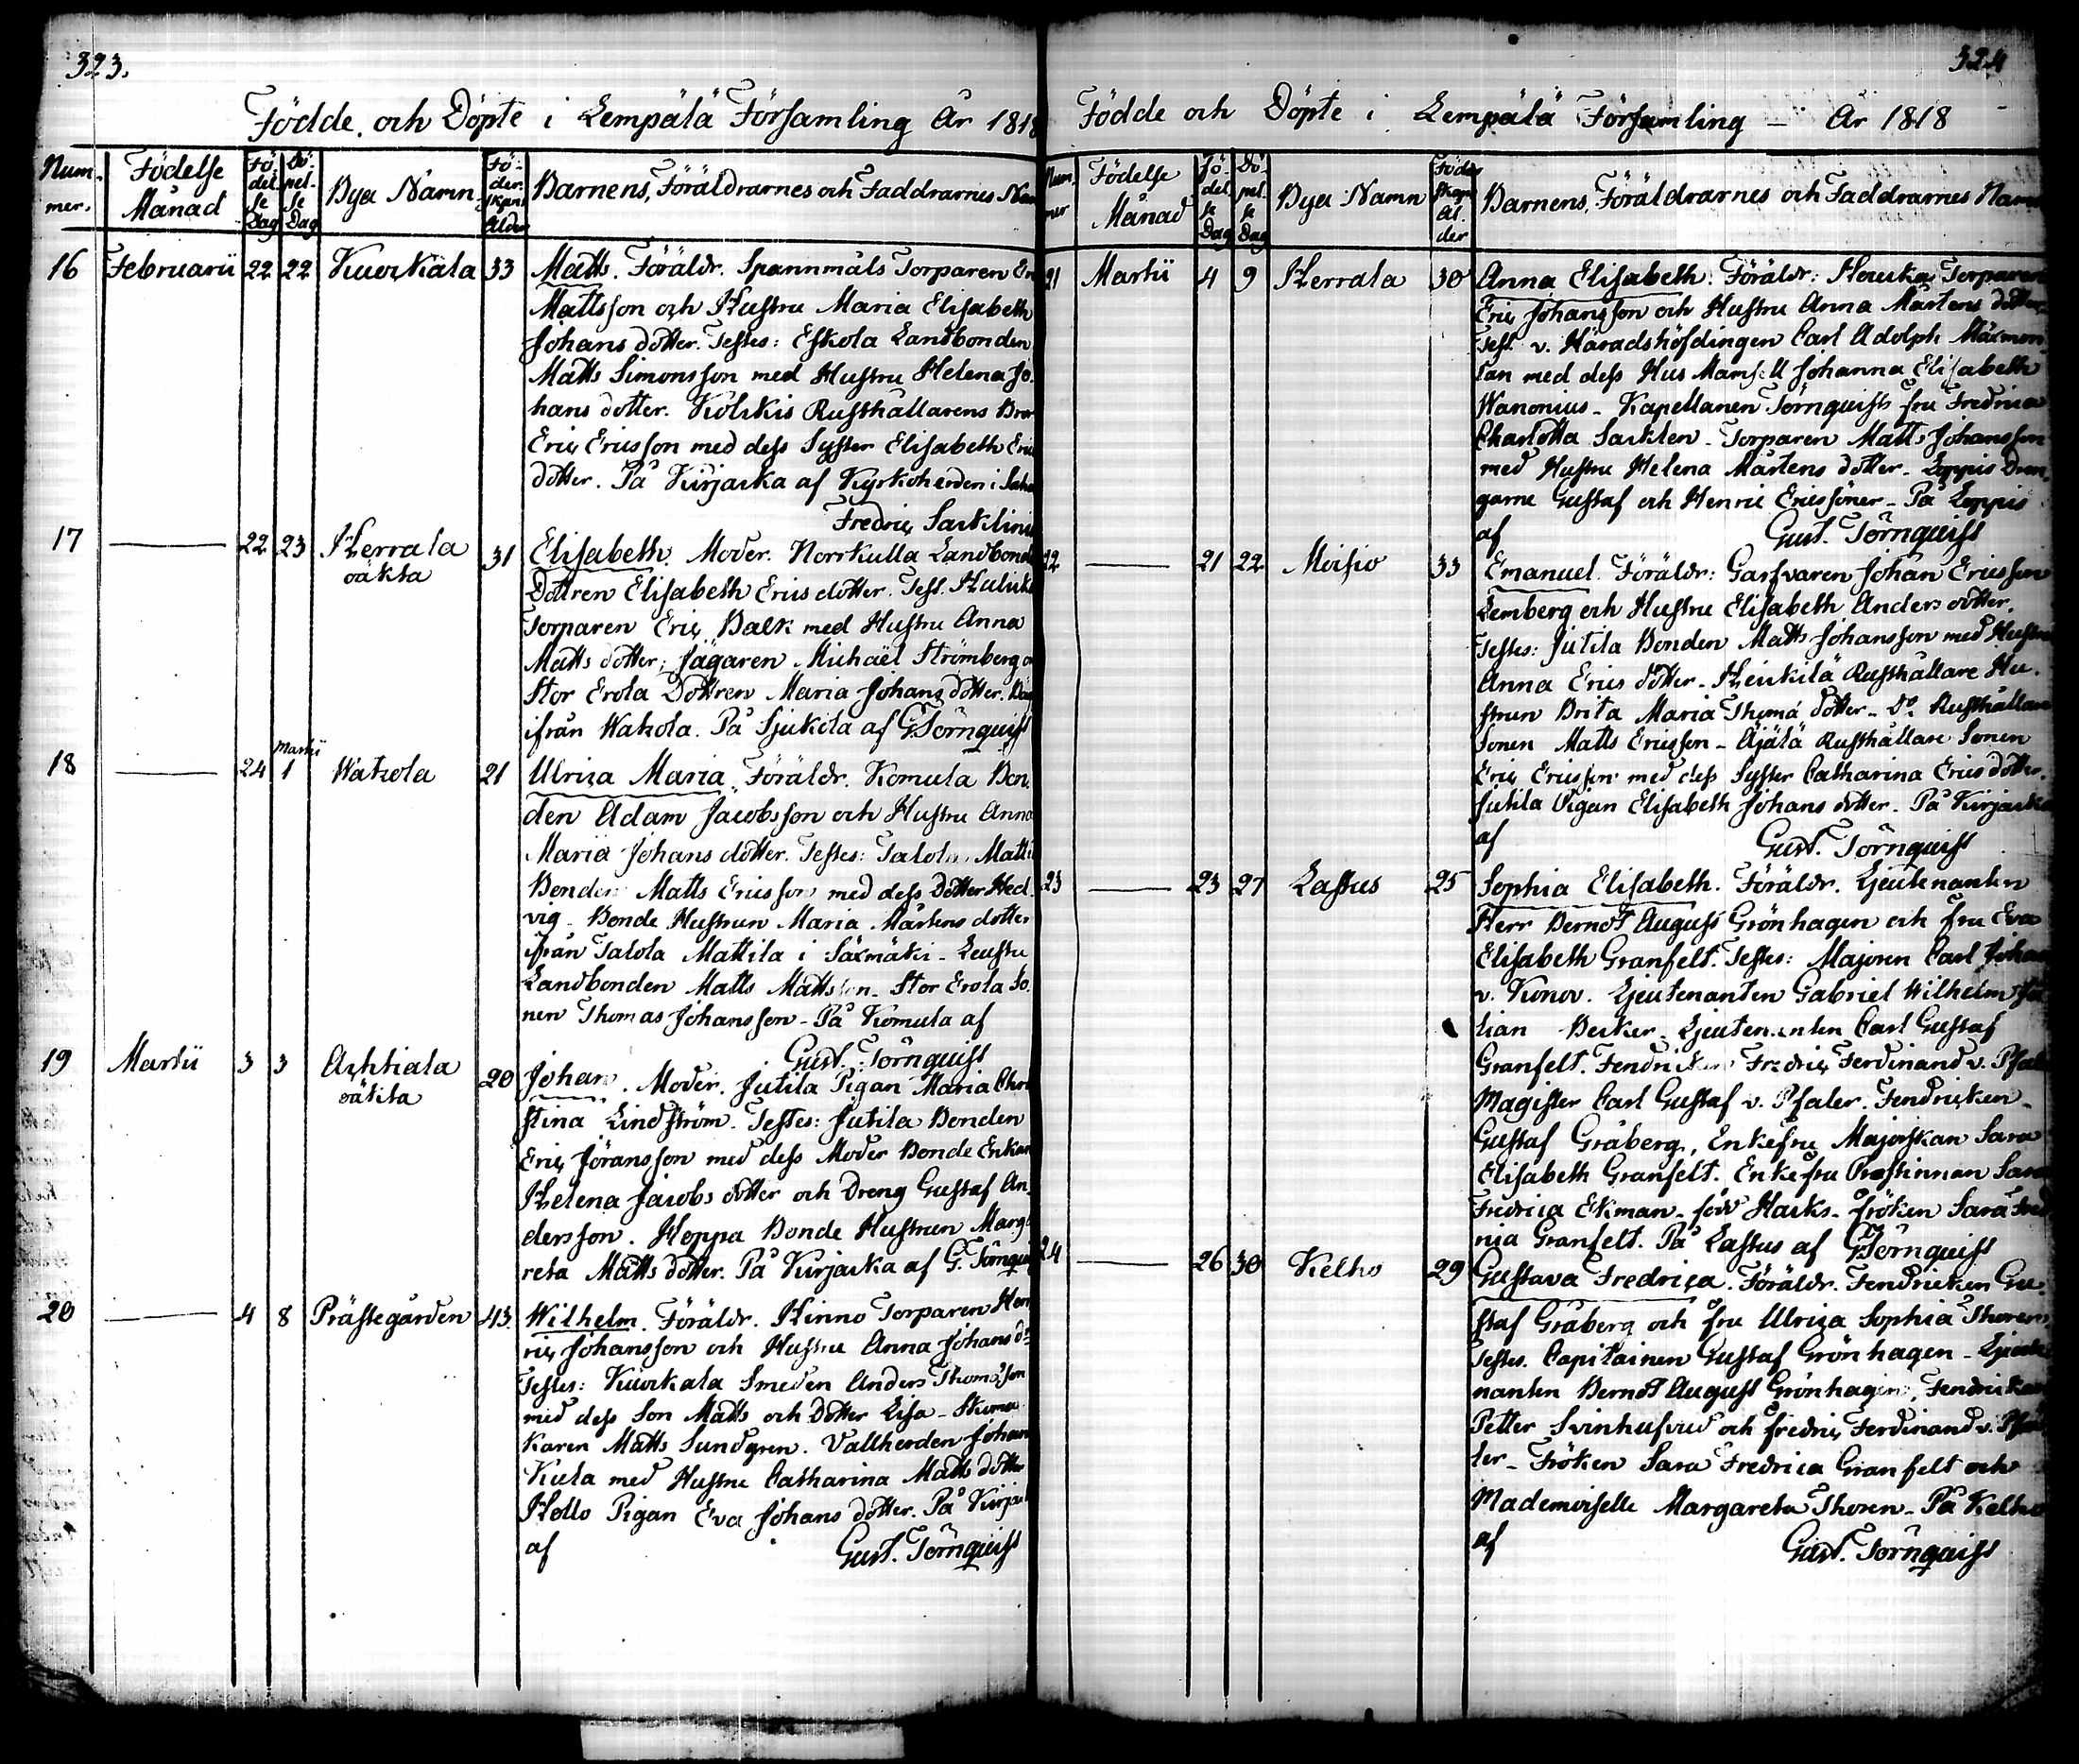 323.
Födde och Döpte i Lempälä Församling År 1818
Num-
mer.
Födelse
Månad
Fö
del
se
Dag
Dö-
pel-
se
Dag
Bya Namn
Fö-
der-
skans
Ålder
Barnens, Föräldrarnes och Faddrarnes Nam
16 Februarii 22 22 Kuorkiala 33 Matts. Föräldr. Spannmåls Torparen Er
Mattsson och Hustru Maria Elisabeth
Johans dotter. Testes: Eskola Landbonden
Matts Simonsson med Hustru Helena Jo-
hans dotter. Kolkis Rusthållarens Bror
Eric Ericsson med dess Syster Elisabeth Eric
dotter. På Kirjaska af Kyrkoherden i
Fredric
17 — 22 23 Herrala 31 Elisabeth. Moder. Norrkulla Landbond
oäkta
Dottren Elisabeth Erics dotter. Test.
Torparen Eric Balk med Hustru Anna
Matts dotter; Jägaren Michaël Strömberg o
Stor Erola Dottren Maria Johans dotter.
ifrån Wakola. På Sjukola af G. Törnquist
18 — 24 Martii 1 Wakola 21 Ulrica Maria. Föräldr. Komula Bon-
den Adam Jacobsson och Hustru Anna
Maria Johans dotter. Testes: Talola Matti
Bonden Matts Ericsson med dess Dotter Hed-
vig - Bonde Hustrun Maria Mårtens dotter
ifrån Talola Mattila i Säxmäki -
Landbonden Matts Mattsson - Stor Erola So-
nen Thomas Johansson - På Komula af
Gust. Törnquist
19 Martii 3 3 Ahtiala 20 Johan. Moder. Jutila Pigan Maria Chri
oäkta
stina Lindström. Testes: Jutila Bonden
Eric Jöransson med dess Moder Bonde Enkan
Helena Jacobs dotter och Dreng Gustaf An-
dersson. Hoppa Bonde Hustrun Marga
reta Matts dotter. På Kirjaska af G. Törnquist
20 — 4 8 Prästegården 43. Wilhelm. Föräldr. Hinno Torparen Hen
ric Johansson och Hustru Anna Johans dr
Testes: Kuorkiala Smeden Anders Thomæson
med dess Son Matts och Dotter Lisa - Skoma-
karen Matts Sundgren. Vallherden Johan
Kula med Hustru Catharina Matts dotter
Hollo Pigan Eva Johans dotter. På Kirja
af Gust. Törnquist
324
Födde och Döpte i Lempälä Församling — År 1818
Num-
mer
Födelse
Månad
Fö-
del
se
Dag
Dö-
pel
se
Dag
Bya Namn
Föder
skans
Ål-
der
Barnens, Föräldrarnes och Faddrarnes Namn
21 Martii 4 9 Herrala 30 Anna Elisabeth. Föräldr: Houka Torparen
Eric Johansson och Hustru Anna Mårtens dotter
Test. v. Häradshöfdingen Carl Adolph
tan med dess Hus Mamsell Johanna Elisabeth
Wanonius - Kapellanen Törnquists fru Fredrica
Charlotta - Torparen Matts Johansson
med Hustru Helena Mårtens dotter - Loppis Dren-
garne Gustaf och Henric Ericssöner - På Loppis
af Gust. Törnquist
22 — 21 22 Moisio 33 Emanuel. Föräldr: Garfvaren Johan Ericsson
Lemberg och Hustru Elisabeth Anders dotter.
Testes: Jutila Bonden Matts Johansson med Hustru
Anna Erics dotter - Heikilä Rusthållare Hu-
strun Brita Maria Thomæ dotter - Do. Rusthållare
Sonen Matts Ericsson - Äjälä Rusthållare Sonen
Eric Ericsson med dess Syster Catharina Erics dotter.
Jutila Pigan Elisabeth Johans dotter - På Kirjaska
af Gust. Törnquist
23 — 23 27 Lastus 25 Sophia Elisabeth. Föräldr. Lieutenanten
Herr Berndt August Grönhagen och fru Eva
Elisabeth Granfelt. Testes: Majoren Carl Johan
v. Konov. Lieutenanten Gabriel Wilhelm
lian Becker. Lieutenanten Carl Gustaf
Granfelt. Fendricken Fredric Ferdinand v. Pfaler
Magister Carl Gustaf v. Pfaler. Fendricken
Gustaf Gråberg, Enkefru Majorskan Sara
Elisabeth Granfelt. Enkefru Prostinnan Sara
Fredrica Ekman - född Harks - fröken Sara Fred
rica Granfelt. På Lastus af G. Törnquist
24 — 26 30 Kelho 29 Gustava Fredrica. Föräldr. Fendricken Gu-
staf Gråberg och fru Ulrica Sophia Thoren.
Testes. Capitainen Gustaf Grönhagen - Lieute
nanten Berndt August Grönhagen, Fendricken
Petter Svinhufvud och fredric Ferdinand v. Pfa
ler - Fröken Sara Fredrica Granfelt och
Mademoiselle Margareta Thoren - På Kelho
af Gust. Törnquist